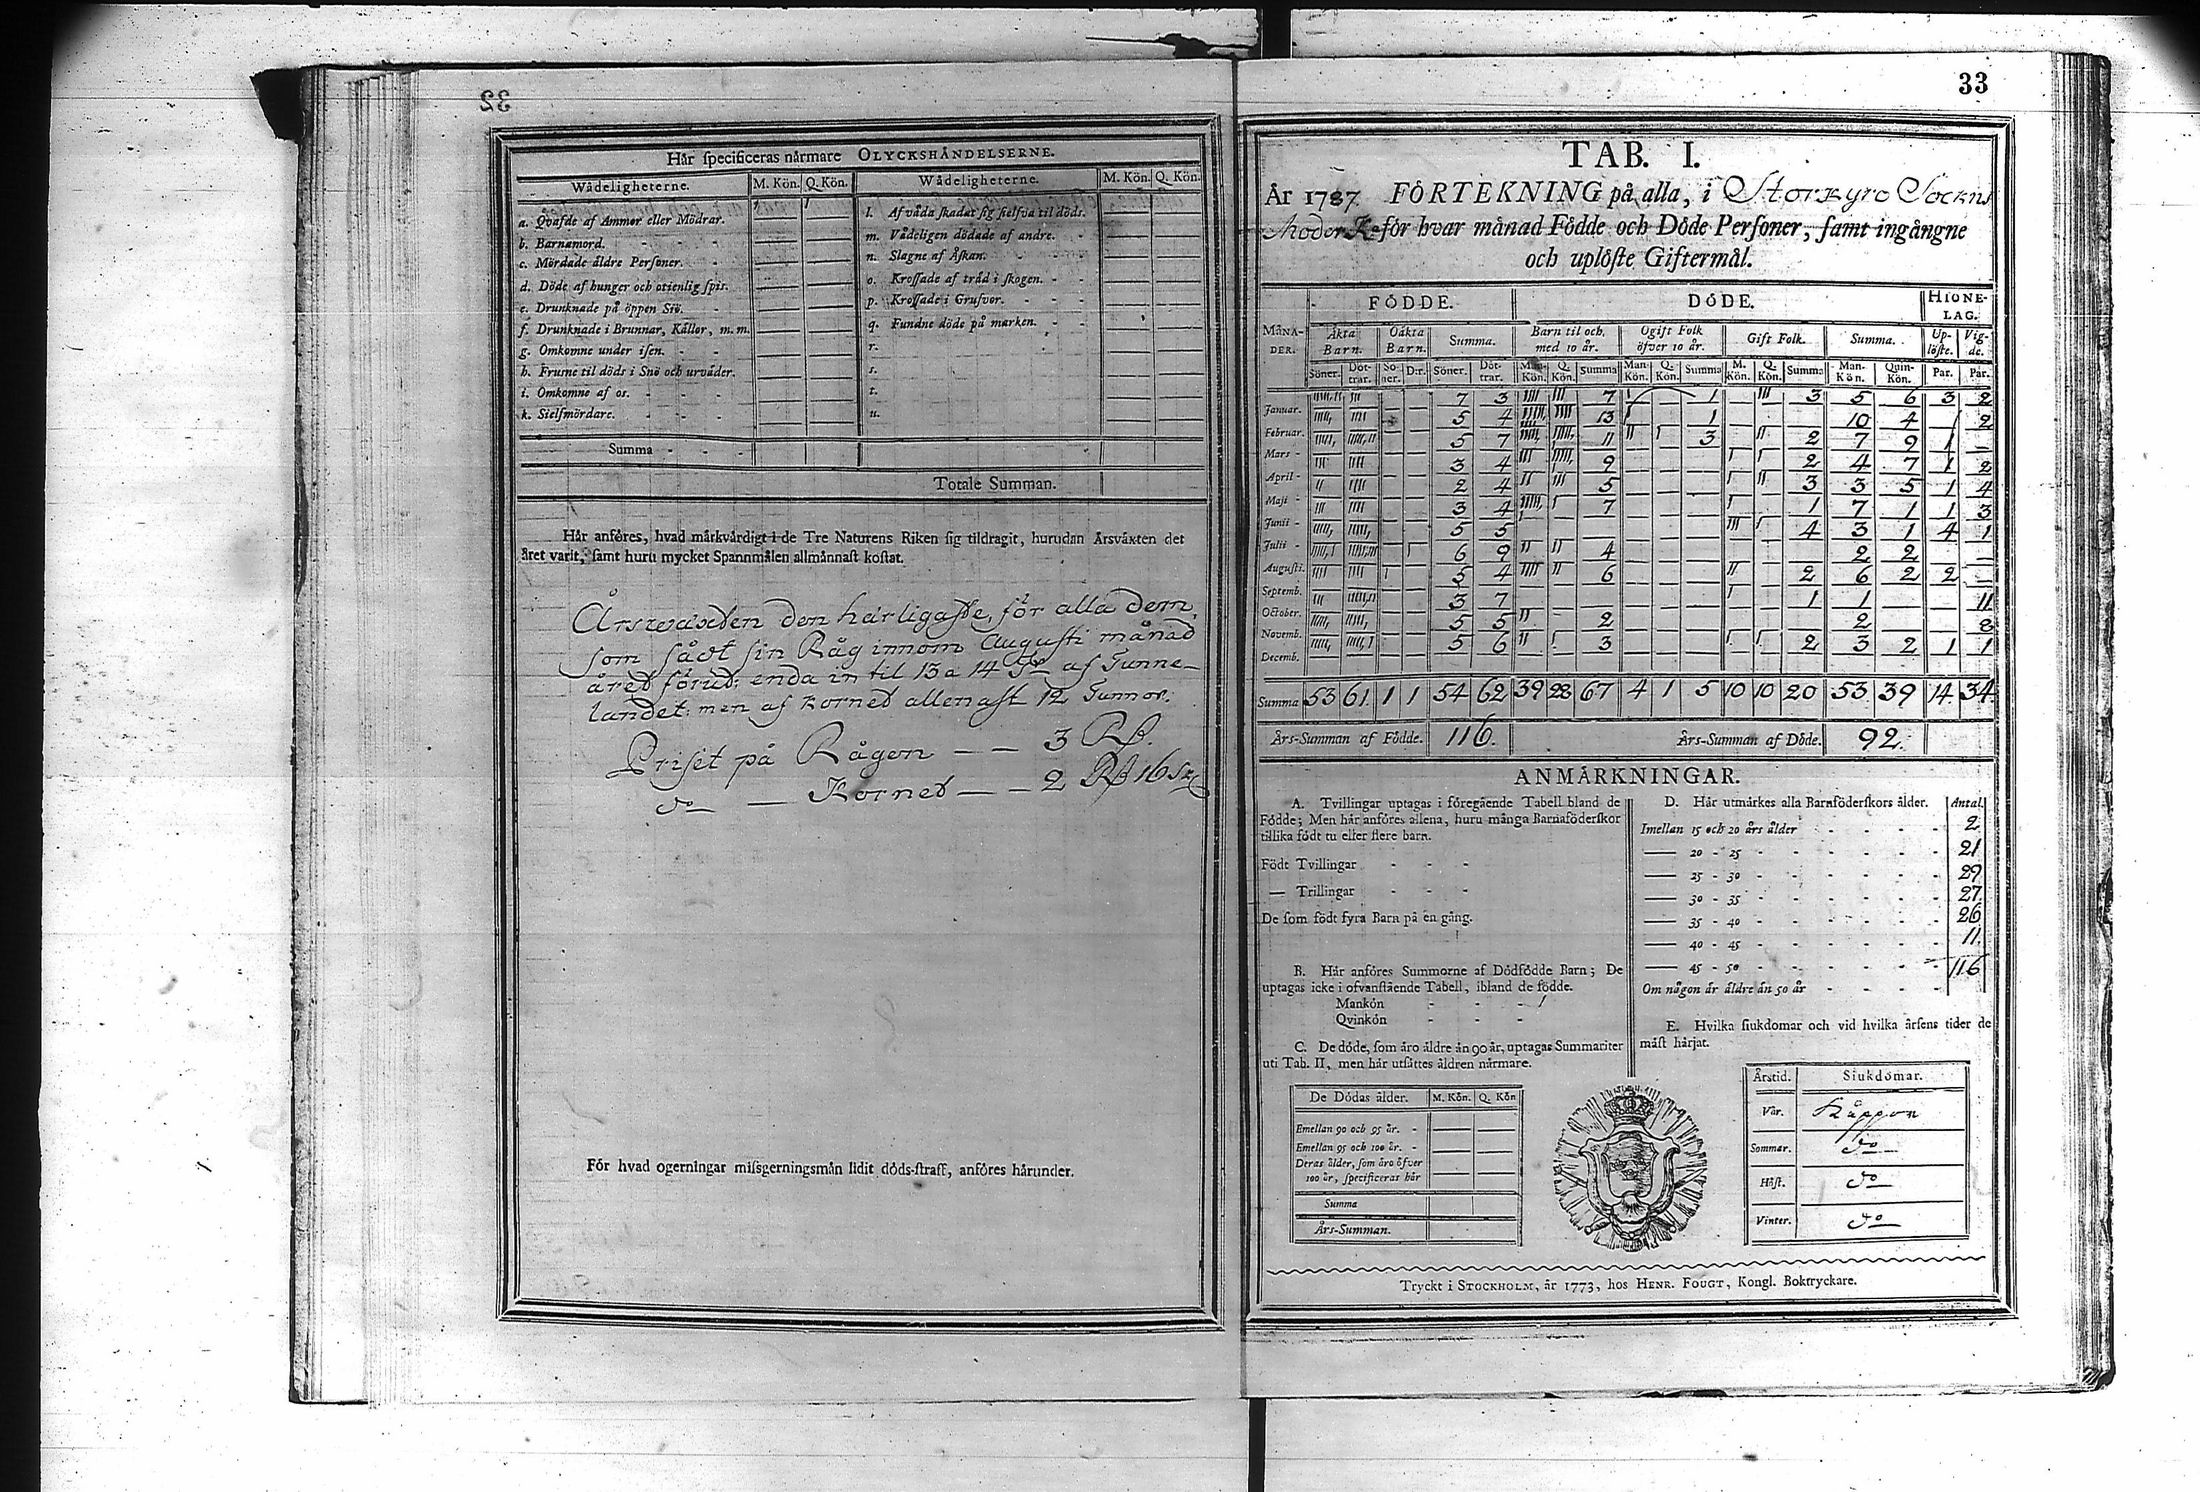 32
Här specificeras närmare OLYCKSHÄNDELSERNE.
Wådeligheterne. M. Kön. Q. Kön. Wådeligheterne. M. Kön. Q. Kön.
a. Qväfde af Ammor eller Mödrar.
b. Barnamord.
c. Mördade äldre Personer.
d. Döde af hunger och otienlig spis.
e. Drunknade på öppen Siö.
f. Drunknade i Brunnar, Källor, m. m.
g. Omkomne under isen.
h. Frusne til döds i Snö och urväder.
i. Omkomne af os.
k. Sielfmördare.
l. Af våda skadat sig sielfva til döds.
m. Vådeligen dödade af andre.
n. Slagne af Åskan.
o. Krossade af träd i skogen.
p. Krossade i Grufvor.
q. Fundne döde på marken.
r.
s.
t.
u.
Summa
Totale Summan.
Här anföres, hvad märkvärdigt i de Tre Naturens Riken sig tildragit, hurudan Årsväxten det
året varit, samt huru mycket Spannmålen allmännast kostat.
Årswäxten den härligaste, för alla dem,
som sådt sin Råg innom Augusti månad
året förut; enda in til 13 a 14 Tr af Tunne-
landet: men af kornet allenast 12 Tunnor.
Priset på Rågen — — 3 R.
do — Kornet — — 2 R 16 sk
För hvad ogerningar missgerningsmän lidit döds-straff, anföres härunder.
33
TAB. I.
År 1787 FÖRTEKNING på alla, i Storkyro Sockns
Moder K. för hvar månad Födde och Döde Personer, samt ingångne
och uplöste Giftermål.
FÖDDE. DÖDE. HIONE-LAG.
MÅNA-DER. Äkta Barn. Oäkta Barn. Summa. Barn til och med 10 år. Ogift Folk öfver 10 år. Gift Folk. Summa. Up-löste. Vig-de.
Söner. Döt-trar. Sö-ner. D:r. Söner. Döt-trar. Man-Kön. Q. Kön. Summa Man-Kön. Q. Kön. Summa M. Kön. Q. Kön. Summa Man-Kön. Quin-Kön. Par. Par.
Januar. 7 3 7 1 3 5 6 3 2
Februar. 5 4 13 1 10 4 1 2
Mars 5 7 11 3 2 7 9 1 —
April 3 4 9 2 4 7 1 2
Maji 2 4 5 3 3 5 1 4
Junii 3 4 7 1 7 1 1 3
Julii 5 5 4 3 1 4 1
Augusti. 6 9 4 2 2 —
Septemb. 5 4 6 2 6 2 2 —
October. 3 7 1 1 11
Novemb. 5 5 2 2 8
Decemb. 5 6 3 2 3 2 1 1
Summa 53 61. 1 1 54 62 39 28 67 4 1 5 10 10 20 53 39 14. 34.
Års-Summan af Födde. 116. Års-Summan af Döde. 92.
ANMÄRKNINGAR.
A. Tvillingar uptagas i föregående Tabell bland de
Födde; Men här anföres allena, huru många Barnaföderskor
tillika födt tu eller flere barn.
Födt Tvillingar
— Trillingar
De som födt fyra Barn på en gång.
B. Här anföres Summorne af Dödfödde Barn; De
uptagas icke i ofvanstående Tabell, ibland de födde.
Mankön 1
Qvinkön
C. De döde, som äro äldre än 90 år, uptagas Summariter
uti Tab. II, men här utsättes åldren närmare.
De Dödas ålder. M. Kön. Q. Kön
Emellan 90 och 95 år.
Emellan 95 och 100 år.
Deras ålder, som äro öfver
100 år, specificeras här
Summa
Års-Summan.
D. Här utmärkes alla Barnföderskors ålder. Antal.
Imellan 15 och 20 års ålder 2
— 20 - 25 21
— 25 - 30 29
— 30 - 35 27
— 35 - 40 26
— 40 - 45 11.
— 45 - 50 116
Om någon är äldre än 50 år
E. Hvilka siukdomar och vid hvilka årsens tider de
mäst härjat.
Årstid. Siukdomar.
Vår. Kåppon
Sommar. do
Höst. do
Vinter. do
Tryckt i STOCKHOLM, år 1773, hos HENR. FOUGT, Kongl. Boktryckare.